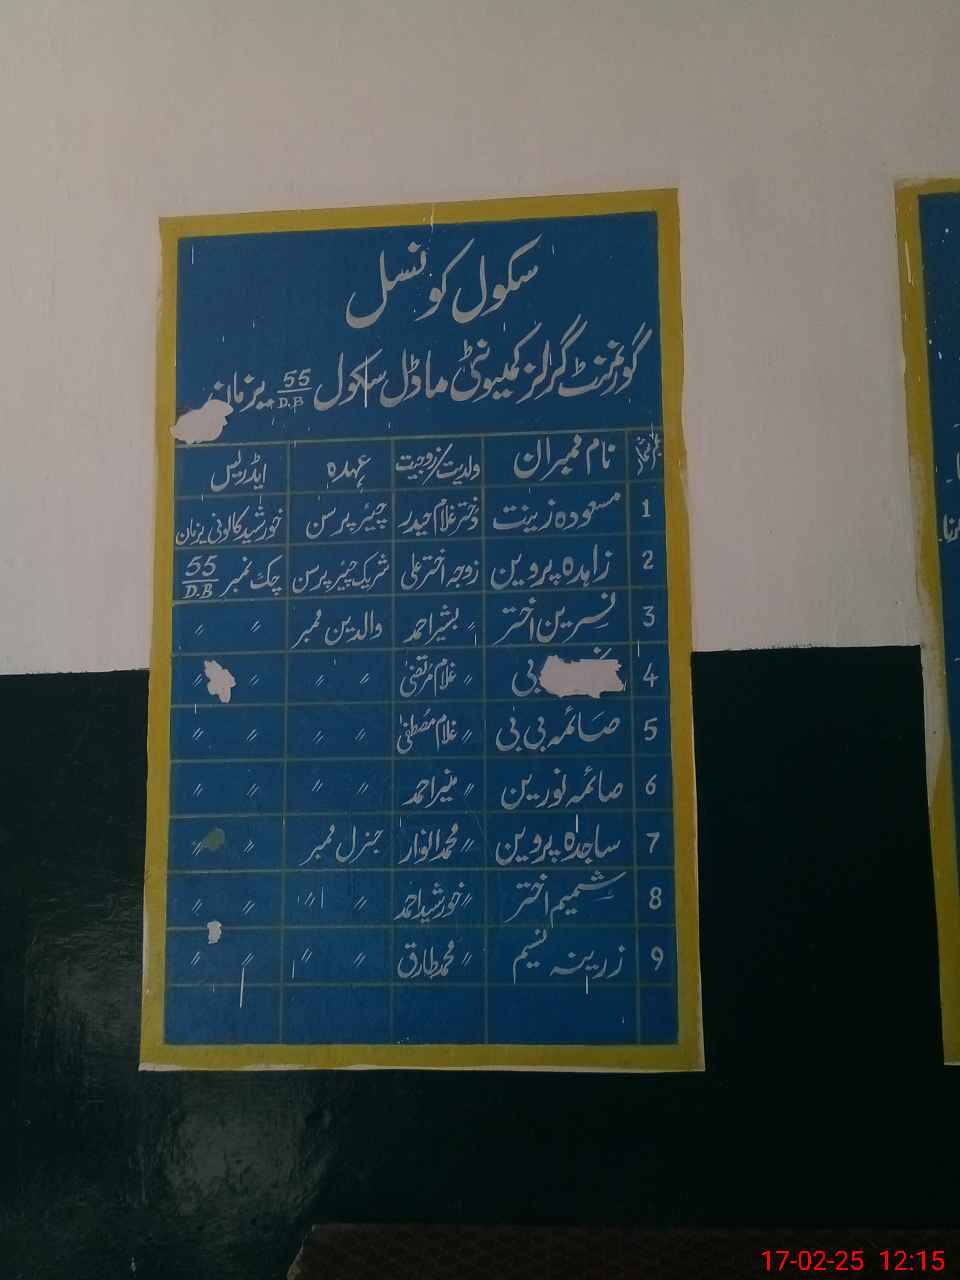 سکول کونسل
گورنمنٹ گرلز کمیونٹی ماڈل سکول 55/D.B یزمان
نمبر شمار نام ممبران ولدیت/زوجیت عہدہ ایڈریس
1 مسعودہ زینت دختر غلام حیدر چیئر پرسن خورشید کالونی یزمان
2 زاہدہ پروین زوجہ اختر علی شریک چیئر پرسن چک نمبر 55/D.B
3 نسرین اختر 〃 بشیر احمد والدین ممبر 〃 〃
4 بی 〃 غلام مرتضیٰ 〃 〃 〃 〃
5 صائمہ بی بی 〃 غلام مصطفیٰ 〃 〃 〃 〃
6 صائمہ نورین 〃 منیر احمد 〃 〃 〃 〃
7 ساجدہ پروین 〃 محمد انوار جنرل ممبر 〃 〃
8 شمیم اختر 〃 خورشید احمد 〃 〃 〃 〃
9 زرینہ نسیم 〃 محمد طارق 〃 〃 〃 〃
17-02-25 12:15